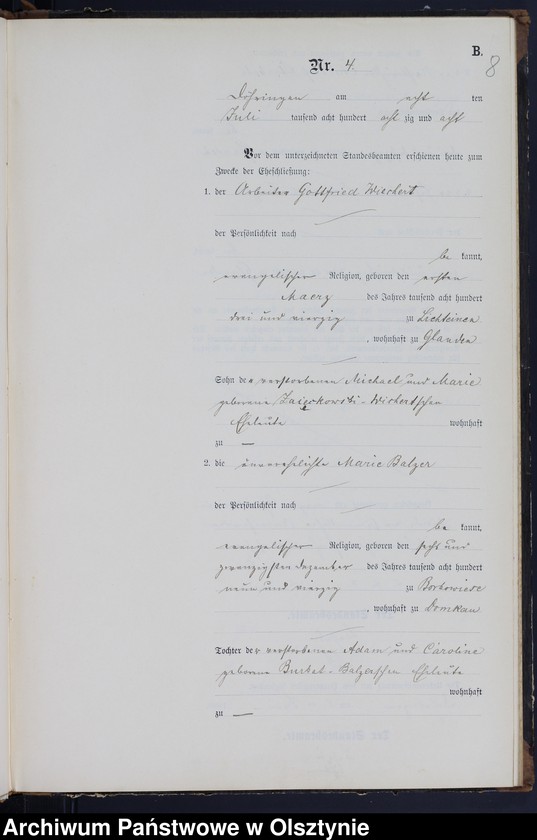 B.
8
Nr. 4.
Döhringen am acht ten
Juli tausend acht hundert acht zig und acht
Vor dem unterzeichneten Standesbeamten erschienen heute zum
Zwecke der Eheschließung:
1. der Arbeiter Gottfried Wiechert
der Persönlichkeit nach
be kannt,
evangelischer Religion, geboren den ersten
Maerz des Jahres tausend acht hundert
drei und vierzig zu Lichteinen
, wohnhaft zu Glanden
Sohn der verstorbenen Michael und Marie
geborene - Wichertschen
Eheleute wohnhaft
zu —
2. die unverehelichte Marie Balzer
der Persönlichkeit nach
be kannt,
evangelischer Religion, geboren den sechs und
zwanzigsten Dezember des Jahres tausend acht hundert
neun und vierzig zu
, wohnhaft zu Domkau
Tochter der verstorbenen Adam und Caroline
geborene Burkat - Balzerschen Eheleute
wohnhaft
zu —
Archiwum Państwowe w Olsztynie